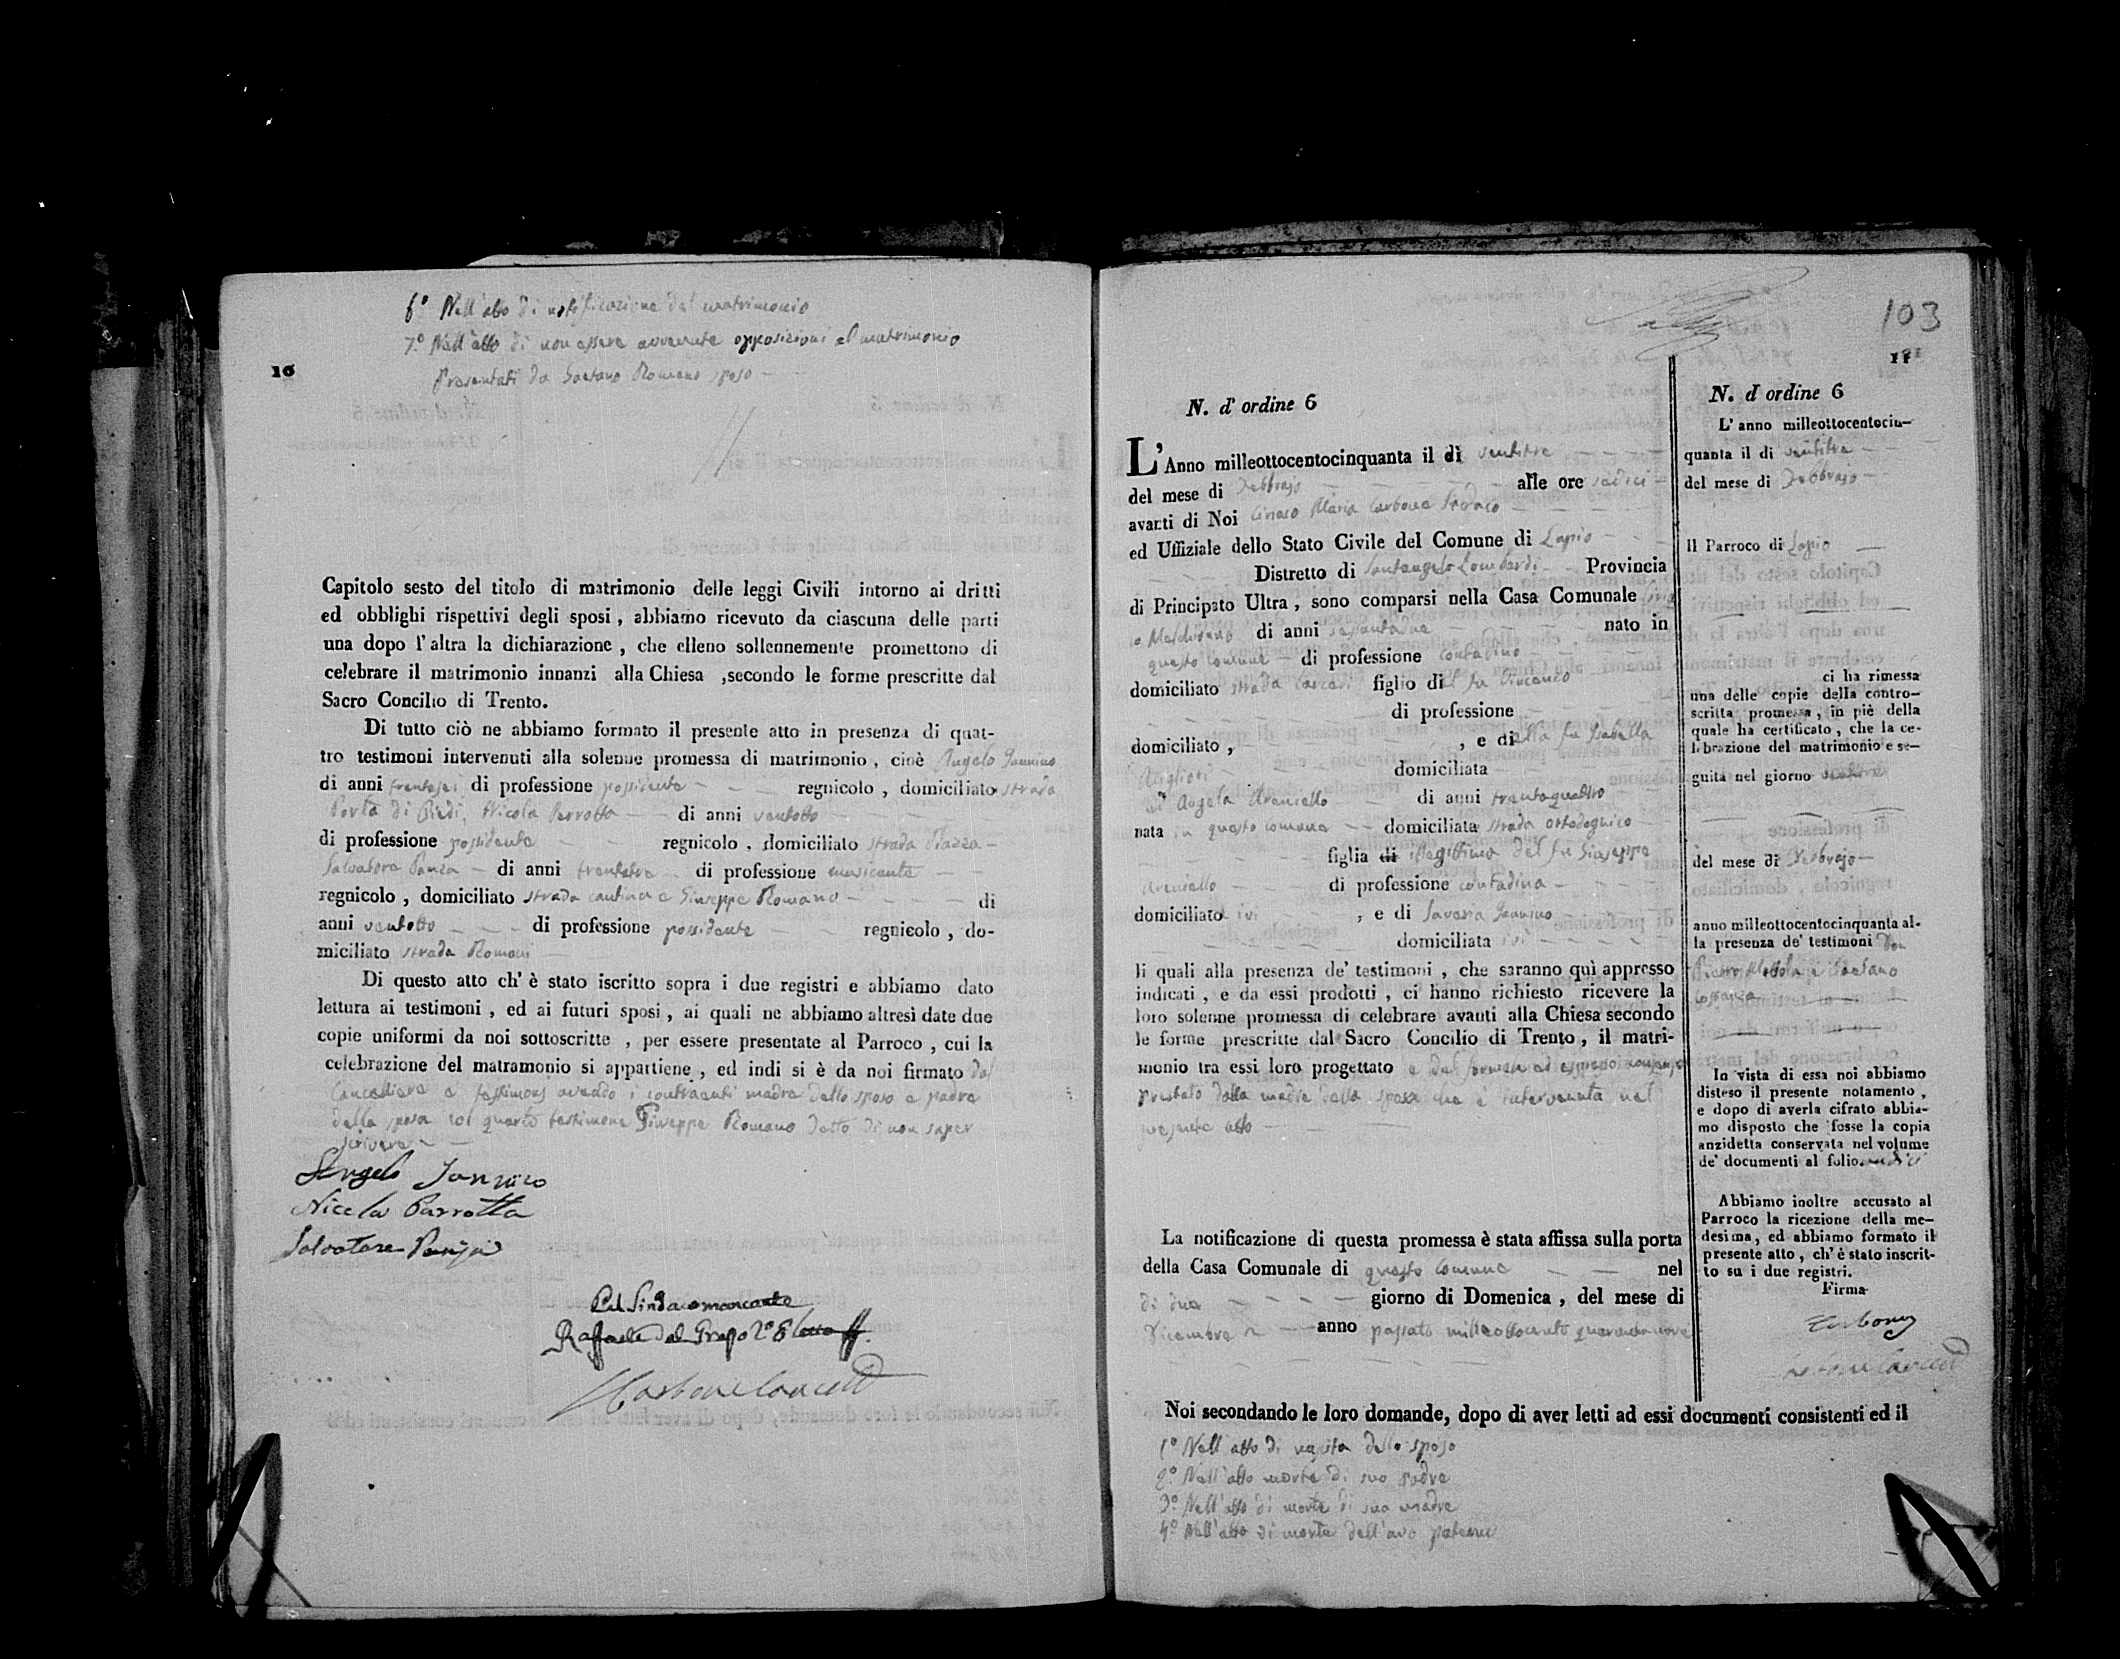 6° Nell'atto di notificazione del matrimonio
7.° Nell'atto di non essere avvenute opposizioni al matrimonio
Presentati da Gaetano Romano sposo
10
Capitolo sesto del titolo di matrimonio delle leggi Civili intorno ai dritti
ed obblighi rispettivi degli sposi, abbiamo ricevuto da ciascuna delle parti
una dopo l'altra la dichiarazione, che elleno sollennemente promettono di
celebrare il matrimonio innanzi alla Chiesa ,secondo le forme prescritte dal
Sacro Concilio di Trento.
Di tutto ciò ne abbiamo formato il presente atto in presenza di quat-
tro testimoni intervenuti alla solenne promessa di matrimonio, cioè Angelo Jannino
di anni trentasei di professione possidente regnicolo, domiciliato strada
Porta di Piedi, Nicola Parrotta di anni ventotto
di professione possidente regnicolo, domiciliato strada Piazza
Salvatore Panza di anni trentatre di professione musicante
regnicolo, domiciliato strada cantina e Giuseppe Romano di
anni ventotto di professione possidente regnicolo, do-
miciliato strada Romani
Di questo atto ch'è stato iscritto sopra i due registri e abbiamo dato
lettura ai testimoni, ed ai futuri sposi, ai quali ne abbiamo altresì date due
copie uniformi da noi sottoscritte, per essere presentate al Parroco, cui la
celebrazione del matramonio si appartiene, ed indi si è da noi firmato dal
Cancelliere e testimoni avendo i contraenti madre dello sposo e padre
della sposa col quarto testimone Giuseppe Romano detto di non saper
scrivere
Angelo Jannino
Nicola Parrotta
Salvatore Panza
Pel Sindaco mancante
Raffaele del Grosso 2° Eletto
Carbone Canc
103
11
N. d'ordine 6
L'Anno milleottocentocinquanta il dì ventitre
del mese di Febbrajo alle ore sedici
avanti di Noi Ciriaco Maria Carbone Sindaco
ed Uffiziale dello Stato Civile del Comune di Lapio
Distretto di Santangelo Lombardi Provincia
di Principato Ultra, sono comparsi nella Casa Comunale
di anni sessantadue nato in
questo Comune di professione contadino
domiciliato strada figlio di el fu Vincenzo
di professione
domiciliato, , e di ella fu Isabella
domiciliata
Angela Areniello di anni trentaquattro
nata in questo comune domiciliata strada ortodognico
figlia di illegittima del fu Giuseppe
Areniello di professione contadina
domiciliato ivi , e di Saveria Jannino
domiciliata ivi
li quali alla presenza de' testimoni, che saranno quì appresso
indicati, e da essi prodotti, ci hanno richiesto ricevere la
loro solenne promessa di celebrare avanti alla Chiesa secondo
le forme prescritte dal Sacro Concilio di Trento, il matri-
monio tra essi loro progettato e del formale ed espresso consenso
prestato dalla madre della sposa che è intervenuta nel
presente atto
La notificazione di questa promessa è stata affissa sulla porta
della Casa Comunale di questo Comune nel
dì due giorno di Domenica, del mese di
Dicembre anno passato milleottocento quarantanove
Noi secondando le loro domande, dopo di aver letti ad essi documenti consistenti ed il
1° Nell'atto di nascita dello sposo
2° Nell'atto morte di suo padre
3° Nell'atto di morte di sua madre
4° Nell'atto di morte dell'avo paterno
N. d ordine 6
L'anno milleottocentocin-
quanta il di ventitre
del mese di Febbrajo
Il Parroco di Lapio
ci ha rimessa
una delle copie della contro-
scritta promessa, in piè della
quale ha certificato, che la ce-
lebrazione del matrimonio e se-
guita nel giorno ventitre
del mese di Febbrajo
anno milleottocentocinquanta al-
la presenza de' testimoni Don
Gaetano
In vista di essa noi abbiamo
disteso il presente notamento,
e dopo di averla cifrato abbia-
mo disposto che fosse la copia
anzidetta conservata nel volume
de' documenti al folio
Abbiamo inoltre accusato al
Parroco la ricezione della me-
desima, ed abbiamo formato il
presente atto, ch'è stato inscrit-
to su i due registri.
Firma
Carbone